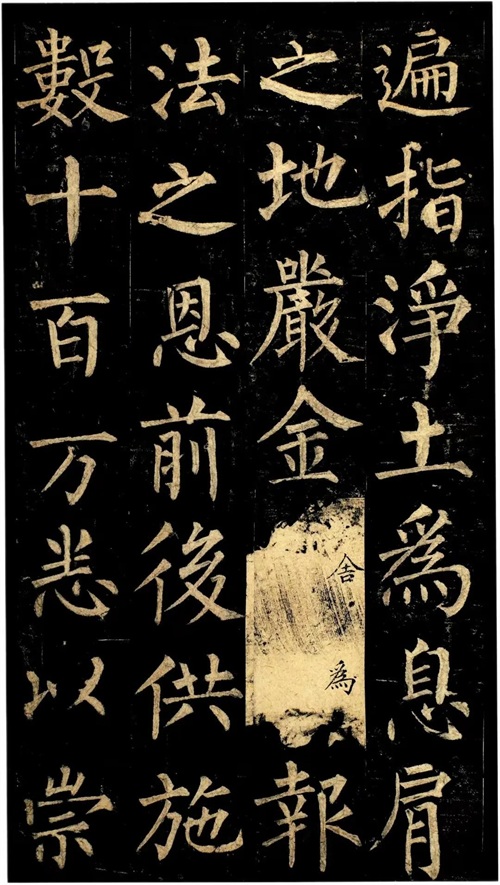 遍指淨土爲息肩
之地嚴金舍為報
法之恩前後供施
數十百万悉以崇